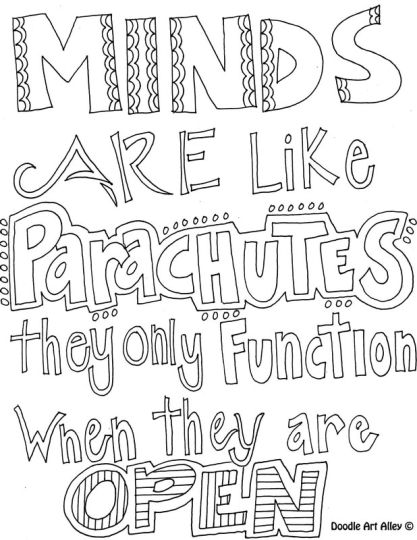 MINDS
ARE Like
ParaCHUTES
they only Function
When they are
OPEN
Doodle Art Alley ©